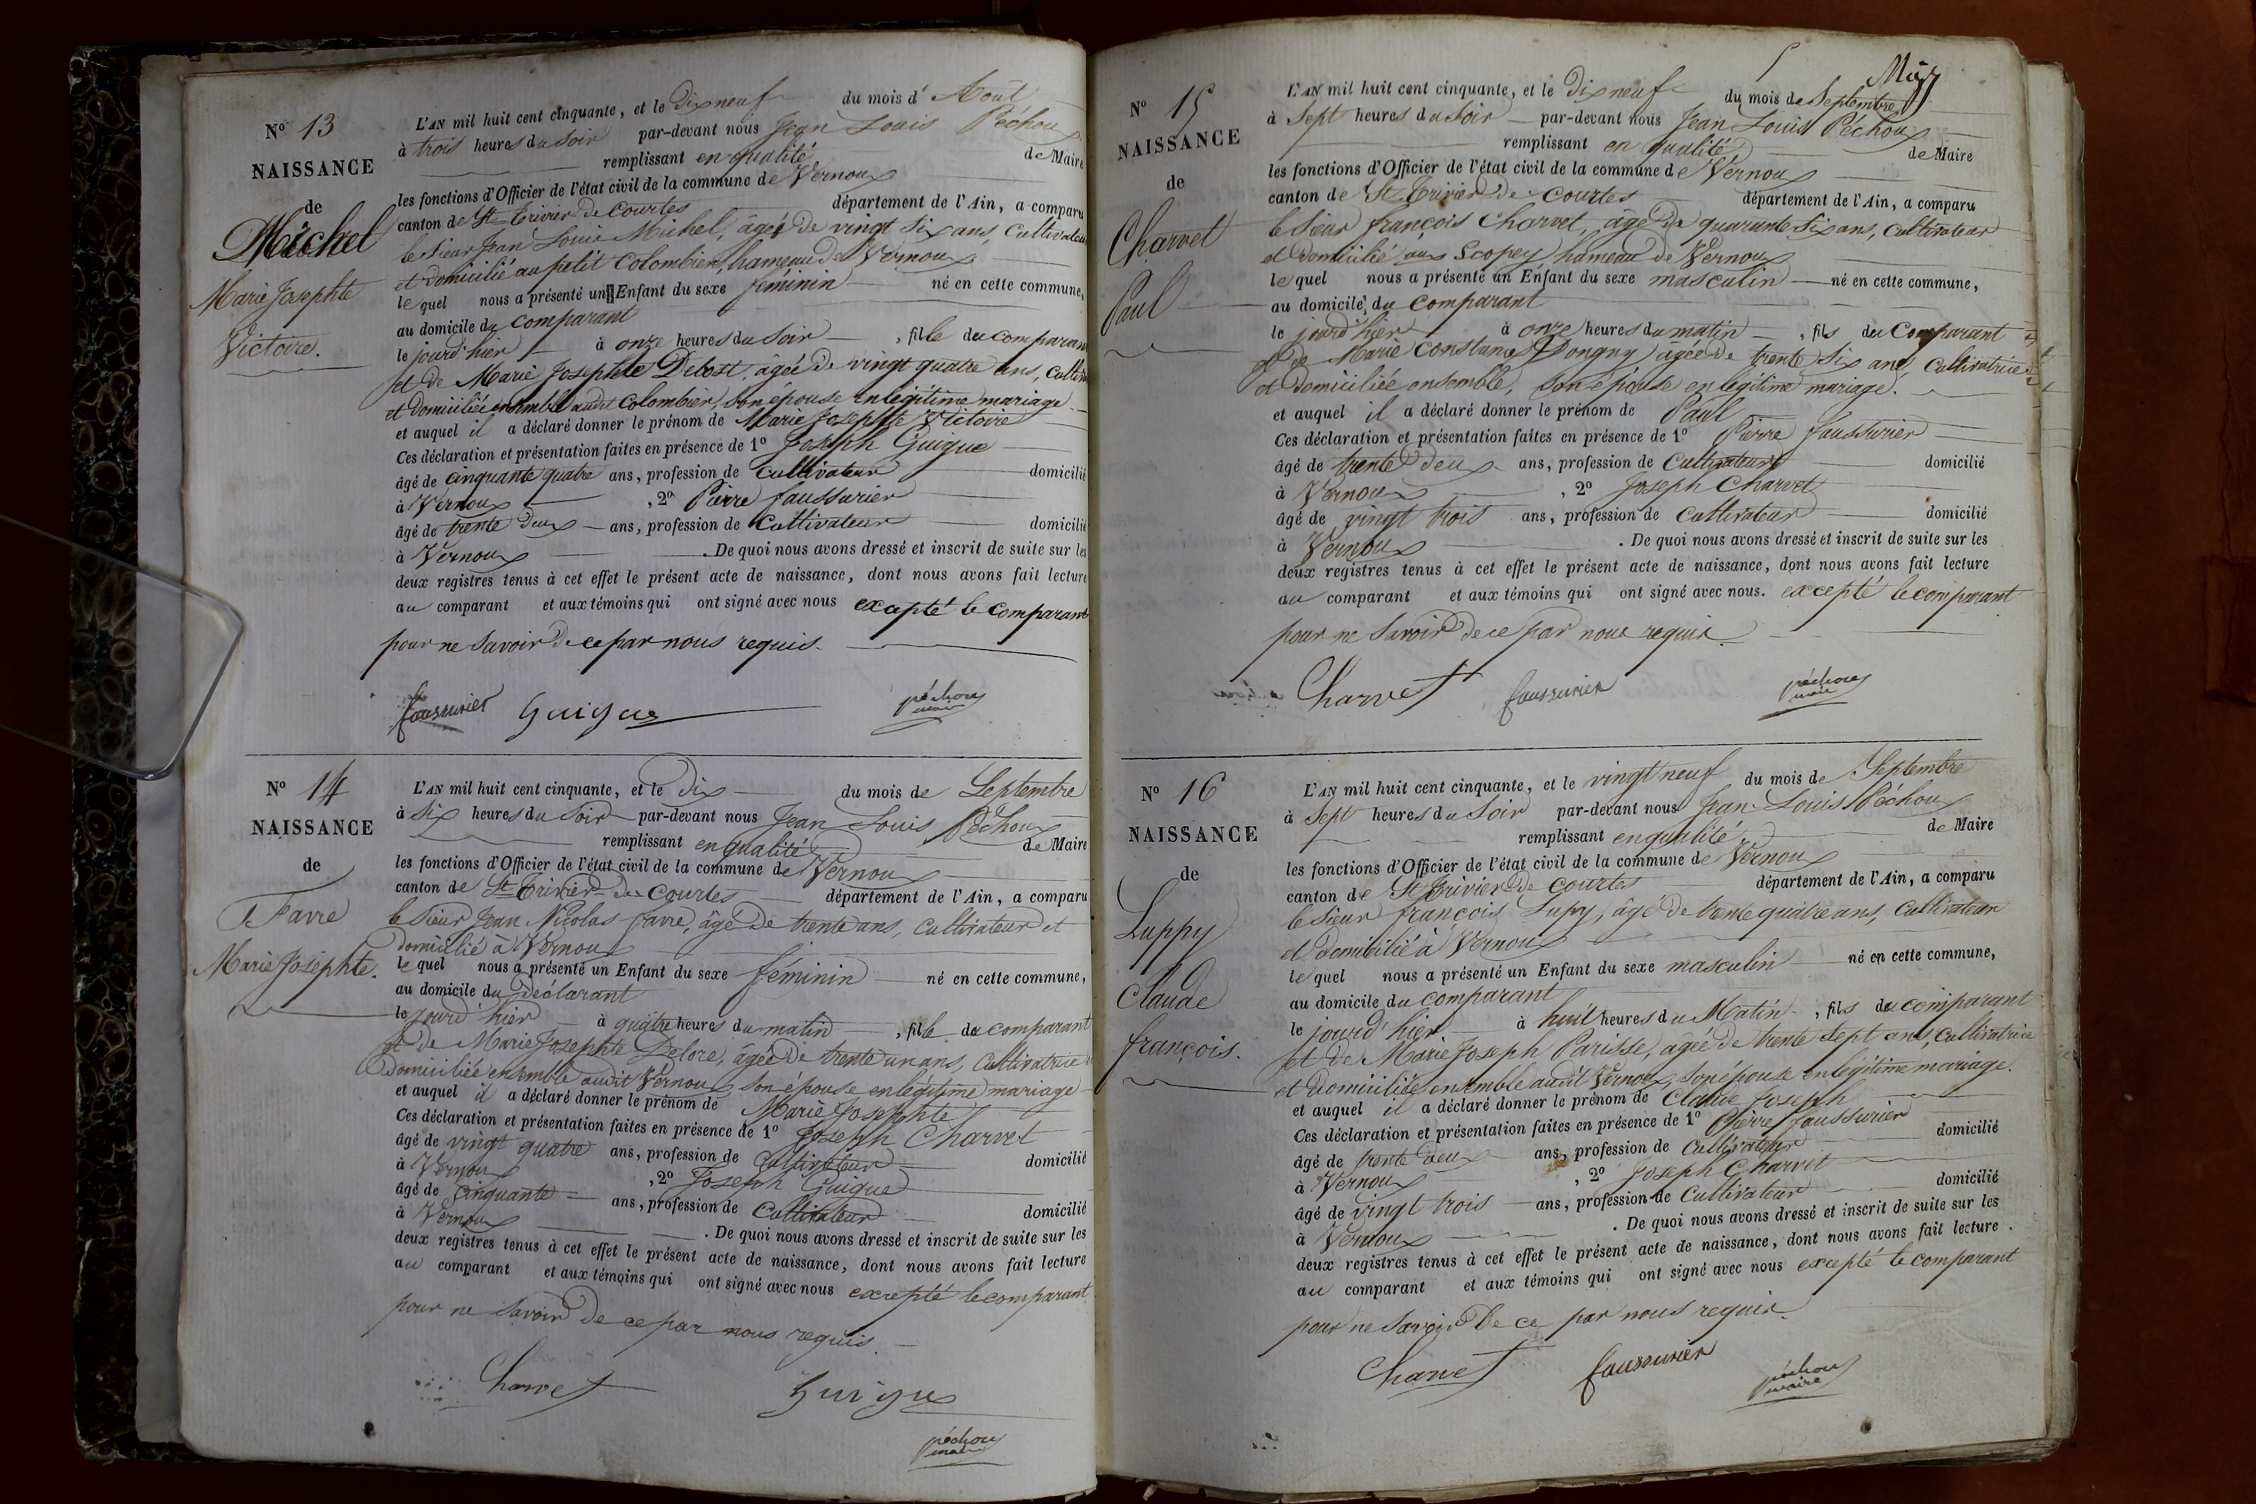 N° 13
NAISSANCE
de
Michel
Marie Josephte
Victoire.
L'AN mil huit cent cinquante, et le dix neuf du mois d' Août
à trois heures du Soir par-devant nous Jean Louis Péchoux
remplissant en qualité de Maire
les fonctions d'Officier de l'état civil de la commune de Vernoux
canton de St Trivier de Courtes département de l'Ain, a comparu
le Sieur Jean Louis Michel, âgé de vingt Six ans, Cultivateur
et domicilié au petit Colombier, hameau de Vernoux
le quel nous a présenté un Enfant du sexe féminin né en cette commune,
au domicile du comparant
le jourd'hier à onze heures du Soir, fille du comparant
et de Marie Josephte Delost, âgée de vingt quatre ans, Cultiv
et domiciliée ensemble audit Colombier, son épouse en légitime mariage
et auquel il a déclaré donner le prénom de Marie Josephte Victoire
Ces déclaration et présentation faites en présence de 1° Joseph Guigue
âgé de cinquante quatre ans, profession de Cultivateur domicilié
à Vernoux, 2° Pierre faussurier
âgé de trente deux ans, profession de Cultivateur domicilié
à Vernoux. De quoi nous avons dressé et inscrit de suite sur les
deux registres tenus à cet effet le présent acte de naissance, dont nous avons fait lecture
au comparant et aux témoins qui ont signé avec nous excepté le comparant
pour ne Savoir de ce par nous requis.
faussurier Guigue péchoux
maire
N° 14
NAISSANCE
de
Favre
Marie Josephte.
L'AN mil huit cent cinquante, et le Dix du mois de Septembre
à six heures du Soir par-devant nous Jean Louis Péchoux
remplissant en qualité de Maire
les fonctions d'Officier de l'état civil de la commune de Vernoux
canton de St Trivier de Courtes département de l'Ain, a comparu
le Sieur Jean Nicolas favre, âgé de trente ans, Cultivateur et
domicilié à Vernoux
le quel nous a présenté un Enfant du sexe féminin né en cette commune,
au domicile du déclarant
le jourd'hier à quatre heures du matin, fille du comparant
et de Marie Josephte Delore, âgée de trente un ans, Cultivatrice
domiciliée ensemble audit Vernoux son épouse en légitime mariage
et auquel il a déclaré donner le prénom de Marie Josephte
Ces déclaration et présentation faites en présence de 1° Joseph Charvet
âgé de vingt quatre ans, profession de Cultivateur domicilié
à Vernoux, 2° Joseph Guigue
âgé de cinquante ans, profession de Cultivateur domicilié
à Vernoux. De quoi nous avons dressé et inscrit de suite sur les
deux registres tenus à cet effet le présent acte de naissance, dont nous avons fait lecture
au comparant et aux témoins qui ont signé avec nous excepté le comparant
pour ne Savoir de ce par nous requis.
Charvet Guigue
péchoux
maire
N° 15
NAISSANCE
de
Charvet
Paul
L'AN mil huit cent cinquante, et le Dix neuf du mois de Septembre
à Sept heures du Soir par-devant nous Jean Louis Péchoux
remplissant en qualité de Maire
les fonctions d'Officier de l'état civil de la commune de Vernoux
canton de St Trivier de Courtes département de l'Ain, a comparu
le Sieur françois Charvet, âgé de quarante Six ans, Cultivateur
et domicilié aux Scopey hameau de Vernoux
le quel nous a présenté un Enfant du sexe masculin né en cette commune,
au domicile du comparant
le jourd'hier à onze heures du matin, fils du Comparant
et de Marie Constance Pongny âgée de trente Six ans, Cultivatrice
et domiciliée ensemble, son épouse en légitime mariage.
et auquel il a déclaré donner le prénom de Paul
Ces déclaration et présentation faites en présence de 1° Pierre faussurier
âgé de trente deux ans, profession de Cultivateur domicilié
à Vernoux, 2° Joseph Charvet
âgé de vingt trois ans, profession de Cultivateur domicilié
à Vernoux. De quoi nous avons dressé et inscrit de suite sur les
deux registres tenus à cet effet le présent acte de naissance, dont nous avons fait lecture
au comparant et aux témoins qui ont signé avec nous. excepté le comparant
pour ne Savoir de ce par nous requis.
Charvet faussurier péchoux
maire
N° 16
NAISSANCE
de
Luppy
Claude
françois.
L'AN mil huit cent cinquante, et le vingt neuf du mois de Septembre
à Sept heures du Soir par-devant nous Jean Louis Péchoux
remplissant en qualité de Maire
les fonctions d'Officier de l'état civil de la commune de Vernoux
canton de St Trivier de Courtes département de l'Ain, a comparu
le Sieur françois Lupy, âgé de trente quatre ans, Cultivateur
et domicilié à Vernoux
le quel nous a présenté un Enfant du sexe masculin né en cette commune,
au domicile du comparant
le jourd'hier à huit heures du Matin, fils du comparant
et de Marie Joseph Parisse, âgée de trente Sept ans, Cultivatrice
et domiciliée ensemble audit Vernoux, son épouse en légitime mariage.
et auquel il a déclaré donner le prénom de Claude Joseph
Ces déclaration et présentation faites en présence de 1° Pierre faussurier
âgé de trente deux ans, profession de Cultivateur domicilié
à Vernoux, 2° Joseph Charvet
âgé de vingt trois ans, profession de Cultivateur domicilié
à Vernoux. De quoi nous avons dressé et inscrit de suite sur les
deux registres tenus à cet effet le présent acte de naissance, dont nous avons fait lecture.
au comparant et aux témoins qui ont signé avec nous excepté le comparant
pour ne Savoir de ce par nous requis.
Charvet faussurier péchoux
maire